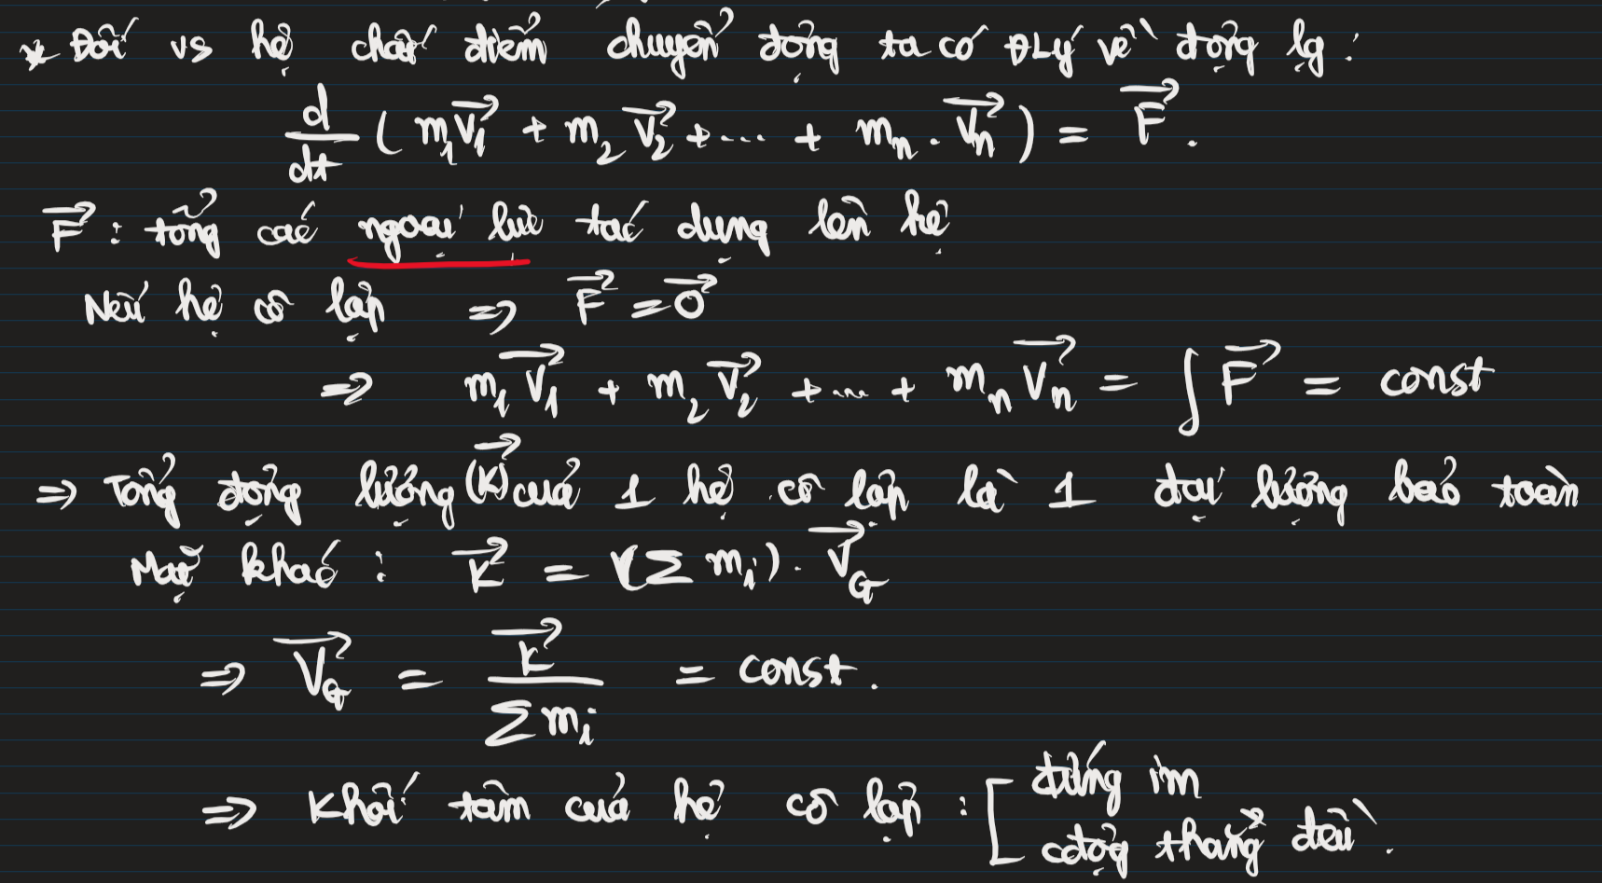 * Đối vs hệ chất điểm chuyển động ta có ĐLý về động lg :
d/dt ( m₁V₁⃗ + m₂V₂⃗ + ... + mₙ . Vₙ⃗ ) = F⃗ .
F⃗ : tổng các ngoại lực tác dụng lên hệ
Nếu hệ cô lập ⇒ F⃗ = 0⃗
⇒ m₁V₁⃗ + m₂V₂⃗ + ... + mₙVₙ⃗ = ∫ F⃗ = const
⇒ Tổng động lượng (K⃗) của 1 hệ cô lập là 1 đại lượng bảo toàn
Mặt khác : K⃗ = (Σ mᵢ) . V_G⃗
⇒ V_G⃗ = K⃗ / Σ mᵢ = const .
⇒ Khối tâm của hệ cô lập : [ đứng im
cđộng thẳng đều .